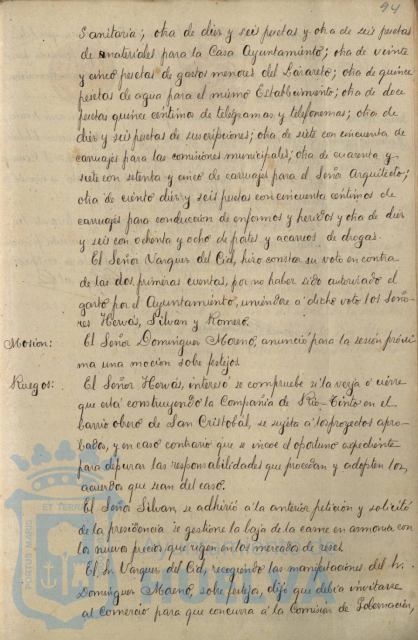 94
Sanitaria; otra de diez y seis pesetas y otra de seis pesetas
de materiales para la Casa Ayuntamiento; otra de veinte
y cinco pesetas de gastos menores del Lazareto; otra de quince
pesetas de agua para el mismo Establecimiento; otra de doce
pesetas quince céntimos de telegramas y telefonemas; otra de
diez y seis pesetas de suscripciones; otra de siete con cincuenta de
carruajes para las comisiones municipales; otra de cuarenta y
siete con setenta y cinco de carruajes para el Señor Arquitecto;
otra de ciento diez y seis pesetas con cincuenta céntimos de
carruajes para conduccion de enfermos y heridos y otra de diez
y seis con ochenta y ocho de portes y acarreos de drogas.
El Señor Vazquez del Cid, hizo constar su voto en contra
de las dos primeras cuentas, por no haber sido autorizado el
gasto por el Ayuntamiento, uniéndose a dicho voto los Seño-
res Hervás, Silvan y Romero.
Mocion: El Señor Dominguez Moreno, anunció para la sesión próxi-
ma una moción sobre festejos.
Ruegos: El Señor Hervás, interesó se compruebe si la verja ó cierre
que está construyendo la Compañia de Rio-Tinto en el
barrio obrero de San Cristobal, se sujeta a los proyectos apro-
bados, y en caso contrario que se incoe el oportuno expediente
para depurar las responsabilidades que procedan y adopten los
acuerdos que sean del caso.
El Señor Silvan, se adhirió a la anterior petición y solicitó
de la presidencia se gestione la baja de la carne en armonia con
los nuevos precios que rigen en los mercados de reses.
El Sr. Vazquez del Cid, recogiendo las manifestaciones del Sr.
Dominguez Moreno, sobre festejos, dijo que debia invitarse
al Comercio para que concurra a la Comisión de Gobernación,
PORTUS MARIS ET TERRAE
Ayuntamiento de
HUELVA